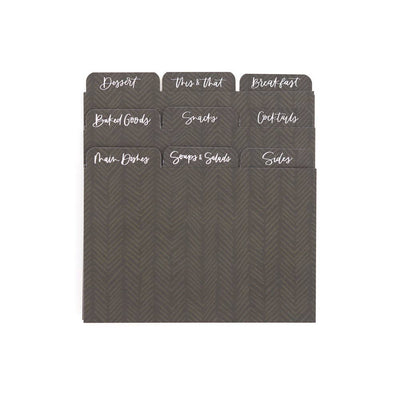 Dessert this & that Breakfast
Baked Goods Snacks Cocktails
Main Dishes Soups & Salads Sides